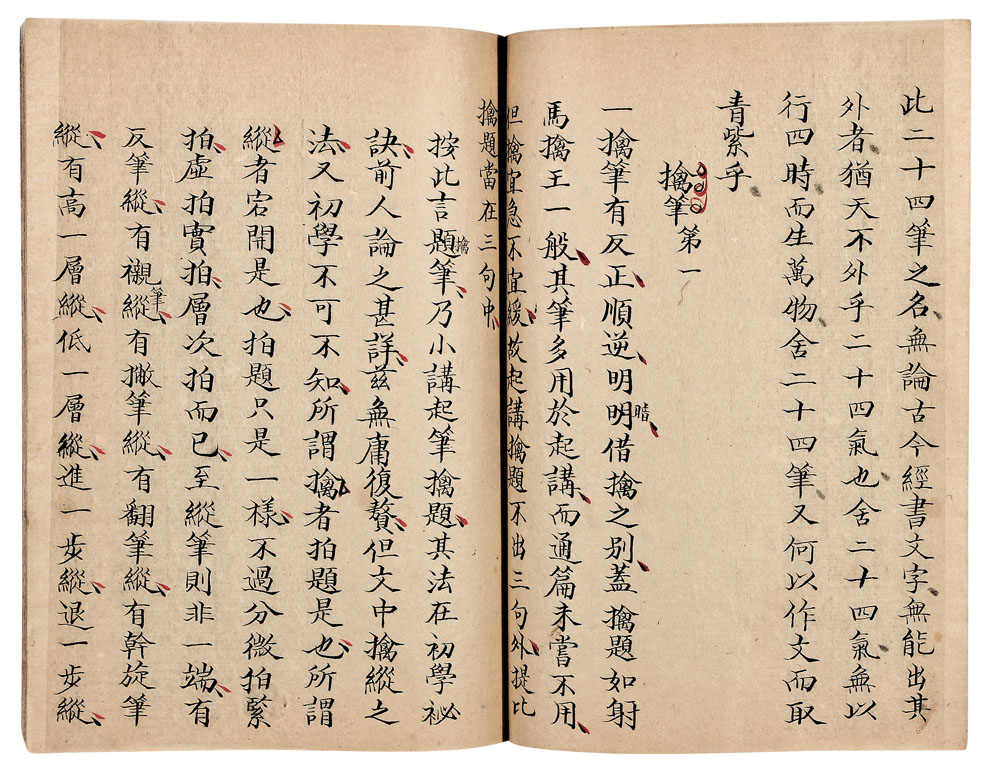 此二十四筆之名無論古今經書文字無能出其
外者猶天不外乎二十四氣也舍二十四氣無以
行四時而生萬物舍二十四筆又何以作文而取
青紫乎
擒筆第一
一擒筆有反正順逆明明暗借擒之别蓋擒題如射
馬擒王一般其筆多用於起講而通篇未嘗不用
但擒宜急不宜緩故起講擒題不出三句外提比
擒題當在三句中
按此言題擒筆乃小講起筆擒題其法在初學祕
訣前人論之甚詳茲無庸復贅但文中擒縱之
法又初學不可不知所謂擒者拍題是也所謂
縱者宕開是也拍題只是一樣不過分微拍緊
拍虛拍實拍層次拍而已至縱筆則非一端有
反筆縱有襯筆縱有撇筆縱有翻筆縱有幹旋筆
縱有高一層縱低一層縱進一步縱退一步縱